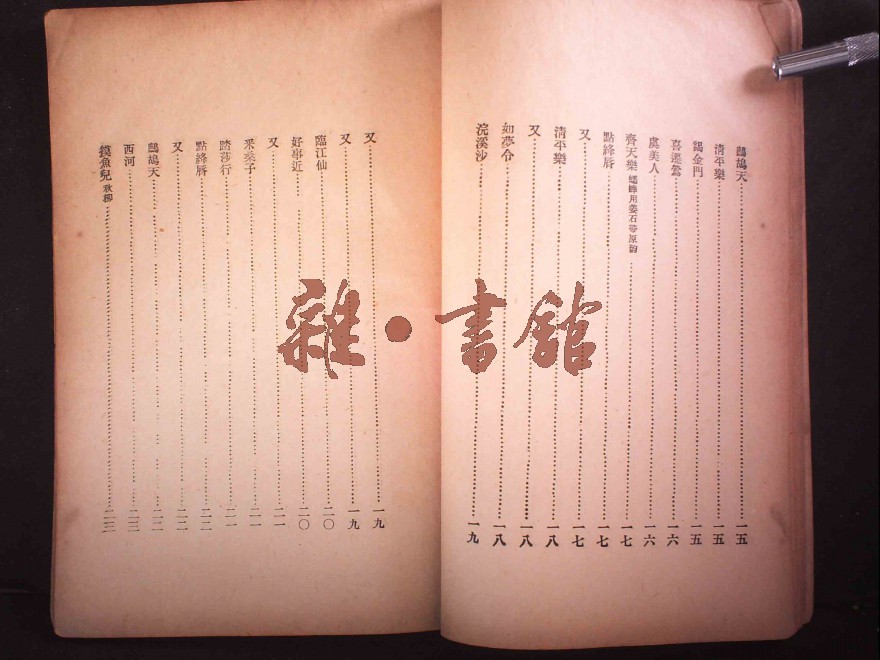 鷓鴣天……一五
清平樂……一五
謁金門……一五
喜遷鶯……一六
虞美人……一六
齊天樂 蟋蟀用姜石帚原韵……一七
點絳唇……一七
又……一七
清平樂……一八
又……一八
如夢令……一八
浣溪沙……一九
又……一九
又……一九
臨江仙……二〇
好事近……二〇
又……二一
采桑子……二一
踏莎行……二一
點絳唇……二二
又……二二
鷓鴣天……二二
西河……二三
摸魚兒 秋柳……二三
雜·書館